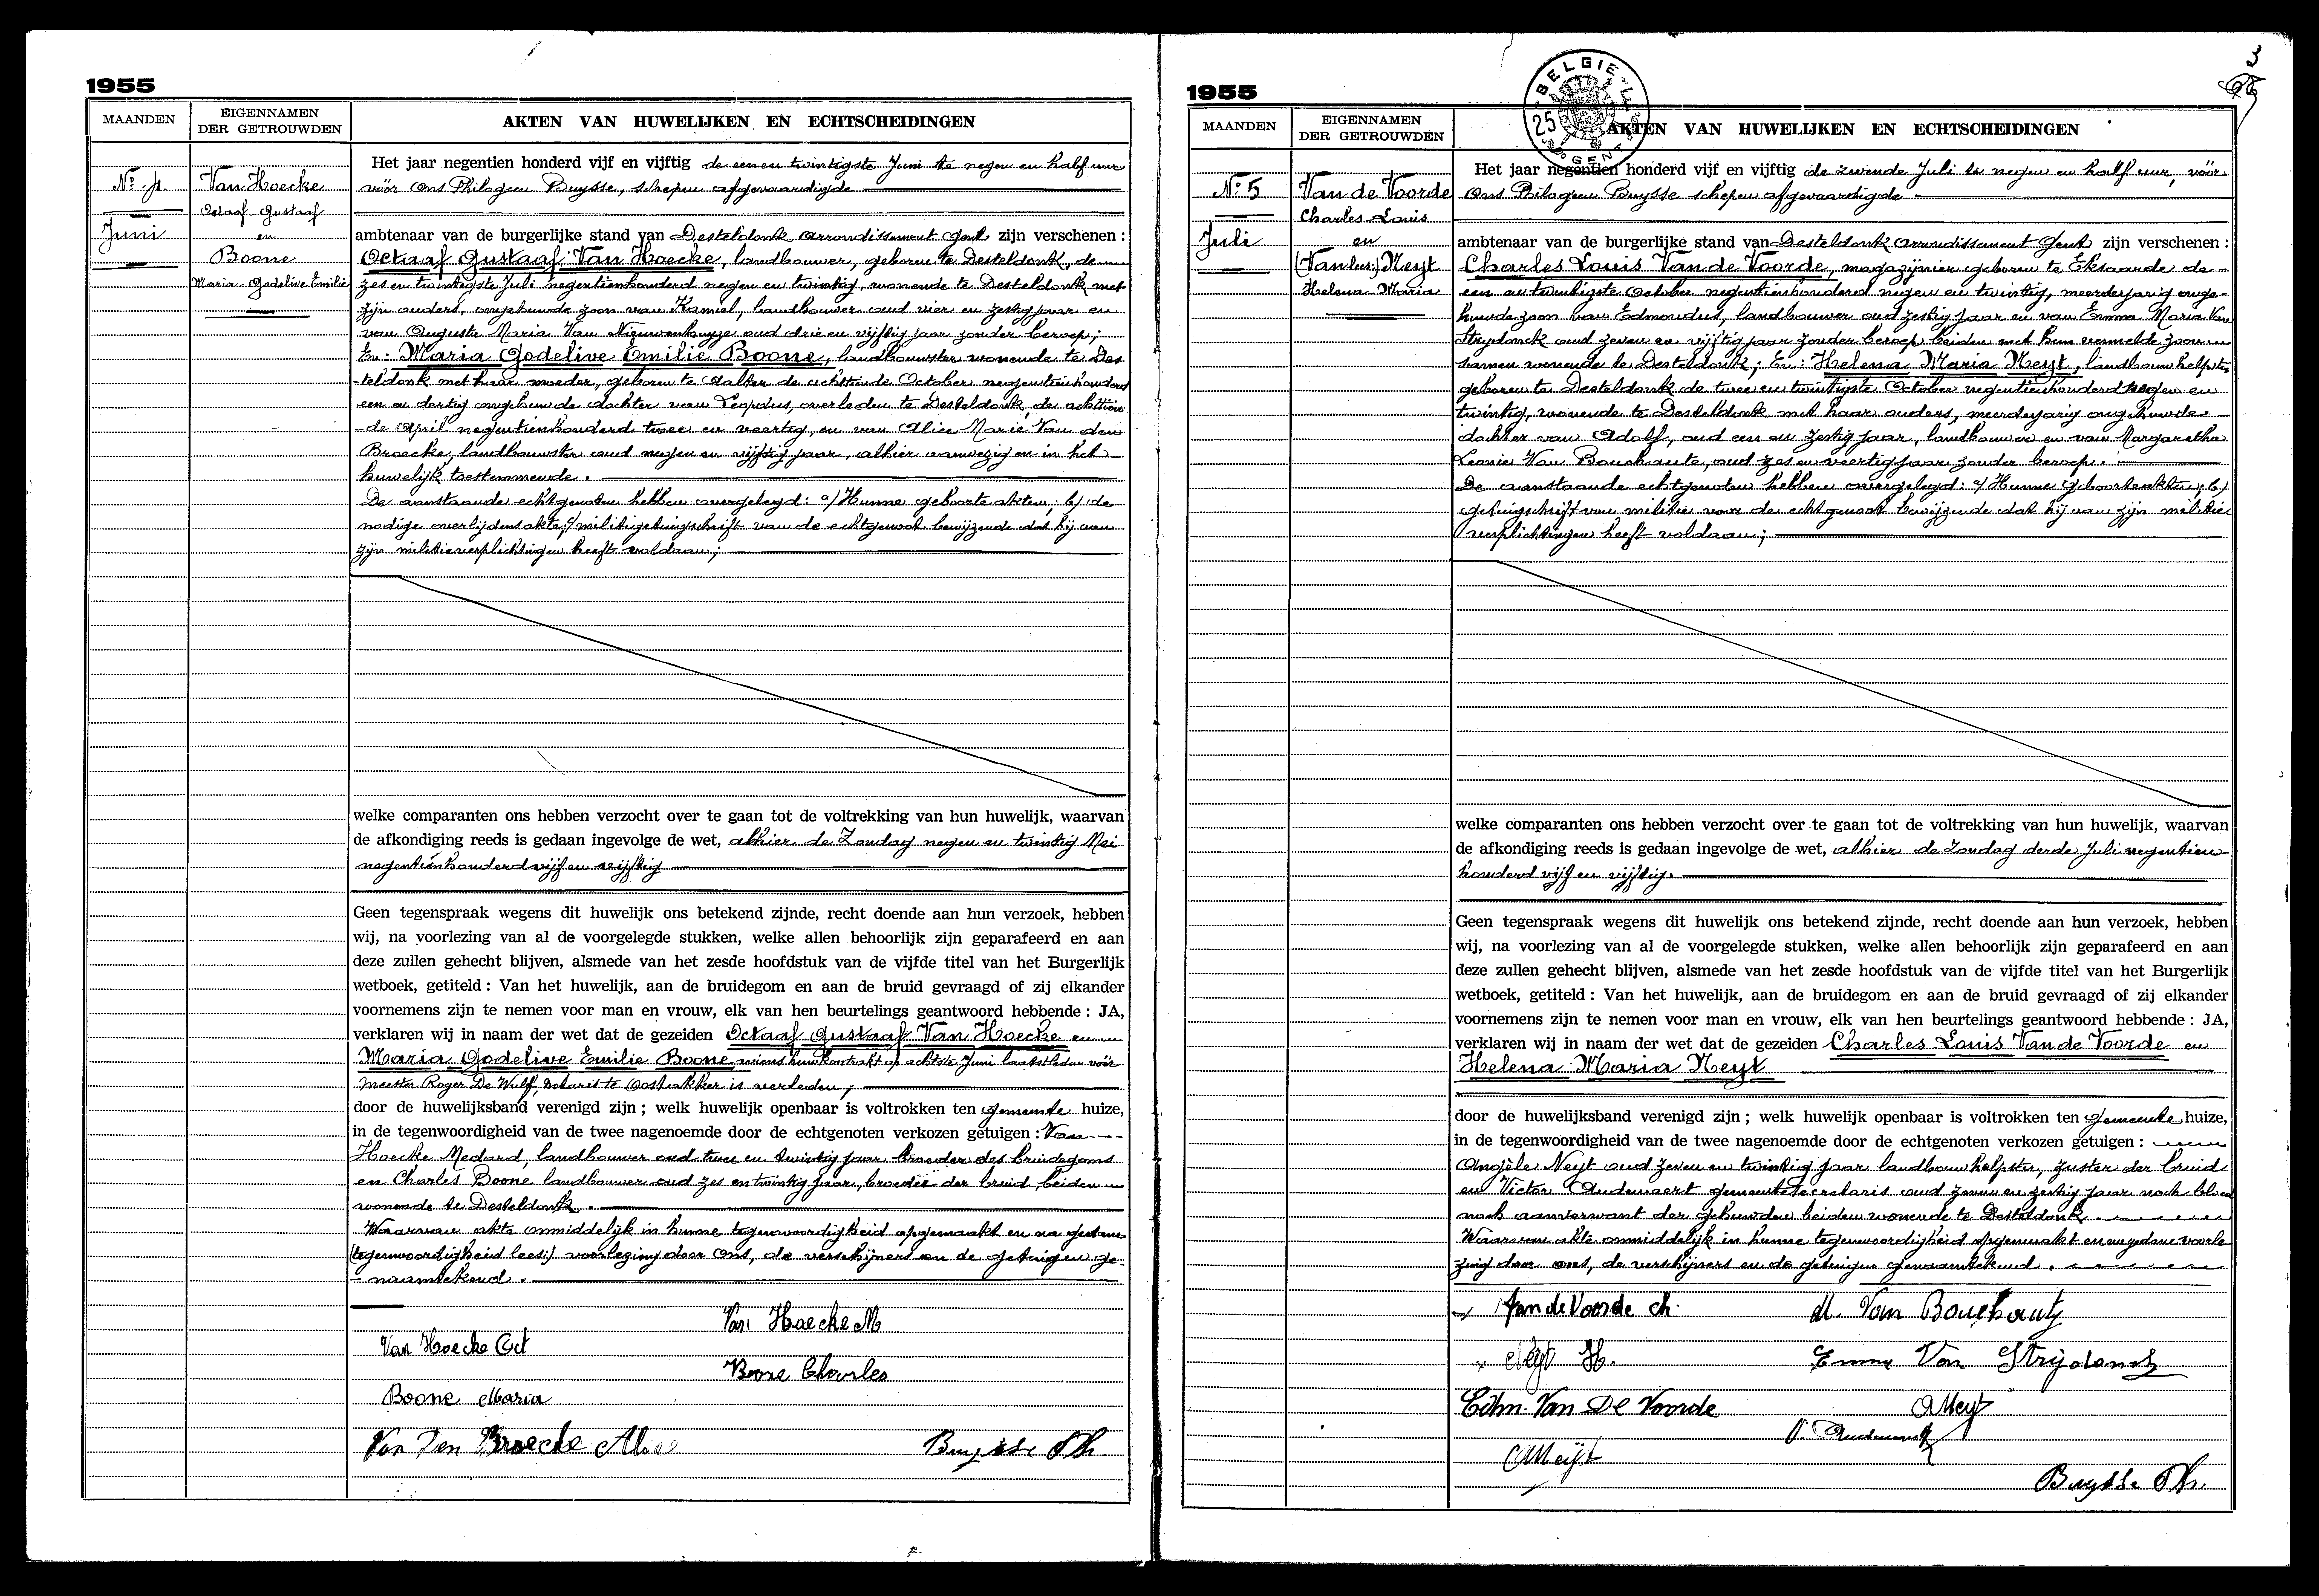 1955
MAANDEN
EIGENNAMEN
DER GETROUWDEN
AKTEN VAN HUWELIJKEN EN ECHTSCHEIDINGEN
Nº 4
Juni
Van Hoecke
Octaaf Gustaaf
en
Boone
Maria Godelive Emilie
Het jaar negentien honderd vijf en vijftig de een en twintigste Juni te negen en half uur
vóór Ons Philogeen Buysse, schepen afgevaardigde
ambtenaar van de burgerlijke stand van Desteldonk arrondissement Gent zijn verschenen :
Octaaf Gustaaf Van Hoecke, landbouwer, geboren te Desteldonk, de
zes en twintigste Juli negentienhonderd negen en twintig, wonende te Desteldonk met
zijn ouders, ongehuwde zoon van Kamiel, landbouwer oud vier en zestig jaar en
van Augusta Maria Van Nieuwenhuyze oud drie en vijftig jaar zonder beroep;
En: Maria Godelive Emilie Boone, landbouwster wonende te Des
teldonk met haar moeder, geboren te Aalter de achttiende October negentienhonderd
een en dertig ongehuwde dochter van Leopoldus, overleden te Desteldonk, de achttien
de April negentienhonderd twee en veertig, en van Alice Marie Van den
Broecke, landbouwster oud negen en vijftig jaar, alhier aanwezig en in het
huwelijk toestemmende.
De aanstaande echtgenoten hebben overgelegd: a/ Hunne geboorteakten; b/ de
nodige overlijdensakte; c/ militiegetuigschrift van de echtgenoot bewijzende dat hij aan
zijn militieverplichtingen heeft voldaan;
welke comparanten ons hebben verzocht over te gaan tot de voltrekking van hun huwelijk, waarvan
de afkondiging reeds is gedaan ingevolge de wet, alhier de Zondag negen en twintig Mei
negentienhonderd vijf en vijftig
Geen tegenspraak wegens dit huwelijk ons betekend zijnde, recht doende aan hun verzoek, hebben
wij, na voorlezing van al de voorgelegde stukken, welke allen behoorlijk zijn geparafeerd en aan
deze zullen gehecht blijven, alsmede van het zesde hoofdstuk van de vijfde titel van het Burgerlijk
wetboek, getiteld : Van het huwelijk, aan de bruidegom en aan de bruid gevraagd of zij elkander
voornemens zijn te nemen voor man en vrouw, elk van hen beurtelings geantwoord hebbende : JA,
verklaren wij in naam der wet dat de gezeiden Octaaf Gustaaf Van Hoecke en
Maria Godelive Emilie Boone wiens huwkontrakt op achtste Juni laatstleden vóór
meester Roger De Wulf, notaris te Oostakker is verleden,
door de huwelijksband verenigd zijn ; welk huwelijk openbaar is voltrokken ten gemeente huize,
in de tegenwoordigheid van de twee nagenoemde door de echtgenoten verkozen getuigen : Van
Hoecke Medard, landbouwer oud twee en twintig jaar broeder des bruidegoms
en Charles Boone landbouwer oud zes en twintig jaar, broeder der bruid, beiden
wonende te Desteldonk.
Waarvan akte onmiddelijk in hunne tegenwoordigheid opgemaakt en na gedane
(tegenwoordigheid lees:) voorlezing door Ons, de verschijners en de getuigen ge-
naamtekend.
Van Hoecke M
Van Hoecke Oct
Boone Charles
Boone Maria
Van Den Broecke Alice
Buysse Ph
3
1955
BELGIE
25
GENT
MAANDEN
EIGENNAMEN
DER GETROUWDEN
AKTEN VAN HUWELIJKEN EN ECHTSCHEIDINGEN
Nº 5
Juli
Van de Voorde
Charles Louis
en
Neyt
Helena Maria
Het jaar negentien honderd vijf en vijftig de zevende Juli te negen en half uur, vóór
Ons Philogeen Buysse schepen afgevaardigde
ambtenaar van de burgerlijke stand van Desteldonk arrondissement Gent zijn verschenen :
Charles Louis Van de Voorde, magazijnier geboren te Eksaarde de
een en twintigste October negentienhonderd negen en twintig, meerderjarig onge-
huwde zoon van Edmondus, landbouwer oud zestig jaar en van Emma Maria Van
Strydonck oud zeven en vijftig jaar zonder beroep beiden met hun vermelde zoon
samen wonende te Desteldonk; En: Helena Maria Neyt, landbouwhelpster
geboren te Desteldonk de twee en twintigste October negentienhonderd negen en
twintig, wonende te Desteldonk met haar ouders, meerderjarig ongehuwde
dochter van Adolf, oud een en zestig jaar, landbouwer en van Margaretha
Leonie Van Bouchaute, oud zes en veertig jaar zonder beroep.
De aanstaande echtgenoten hebben overgelegd: a/ Hunne geboorteakten; b/
getuigschrift van militie voor de echtgenoot bewijzende dat hij aan zijn militie
verplichtingen heeft voldaan;
welke comparanten ons hebben verzocht over te gaan tot de voltrekking van hun huwelijk, waarvan
de afkondiging reeds is gedaan ingevolge de wet, alhier de Zondag derde Juli negentien
honderd vijf en vijftig.
Geen tegenspraak wegens dit huwelijk ons betekend zijnde, recht doende aan hun verzoek, hebben
wij, na voorlezing van al de voorgelegde stukken, welke allen behoorlijk zijn geparafeerd en aan
deze zullen gehecht blijven, alsmede van het zesde hoofdstuk van de vijfde titel van het Burgerlijk
wetboek, getiteld : Van het huwelijk, aan de bruidegom en aan de bruid gevraagd of zij elkander
voornemens zijn te nemen voor man en vrouw, elk van hen beurtelings geantwoord hebbende : JA,
verklaren wij in naam der wet dat de gezeiden Charles Louis Van de Voorde en
Helena Maria Neyt
door de huwelijksband verenigd zijn ; welk huwelijk openbaar is voltrokken ten gemeente huize,
in de tegenwoordigheid van de twee nagenoemde door de echtgenoten verkozen getuigen :
Angèle Neyt oud zeven en twintig jaar landbouwhelpster, zuster der bruid
en Victor Audenaert gemeentesecretaris oud zeven en zestig jaar noch bloed
noch aanverwant der gehuwden beiden wonende te Desteldonk.
Waarvan akte onmiddelijk in hunne tegenwoordigheid opgemaakt en na gedane voorle
zing door ons, de verschijners en de getuigen genaamtekend.
Van de Voorde ch.
M. Van Bouchaute
Neyt H.
Emma Van Strydonck
Edm. Van De Voorde
A Neyt
V. Audenaert
A Neyt
Buysse Ph.